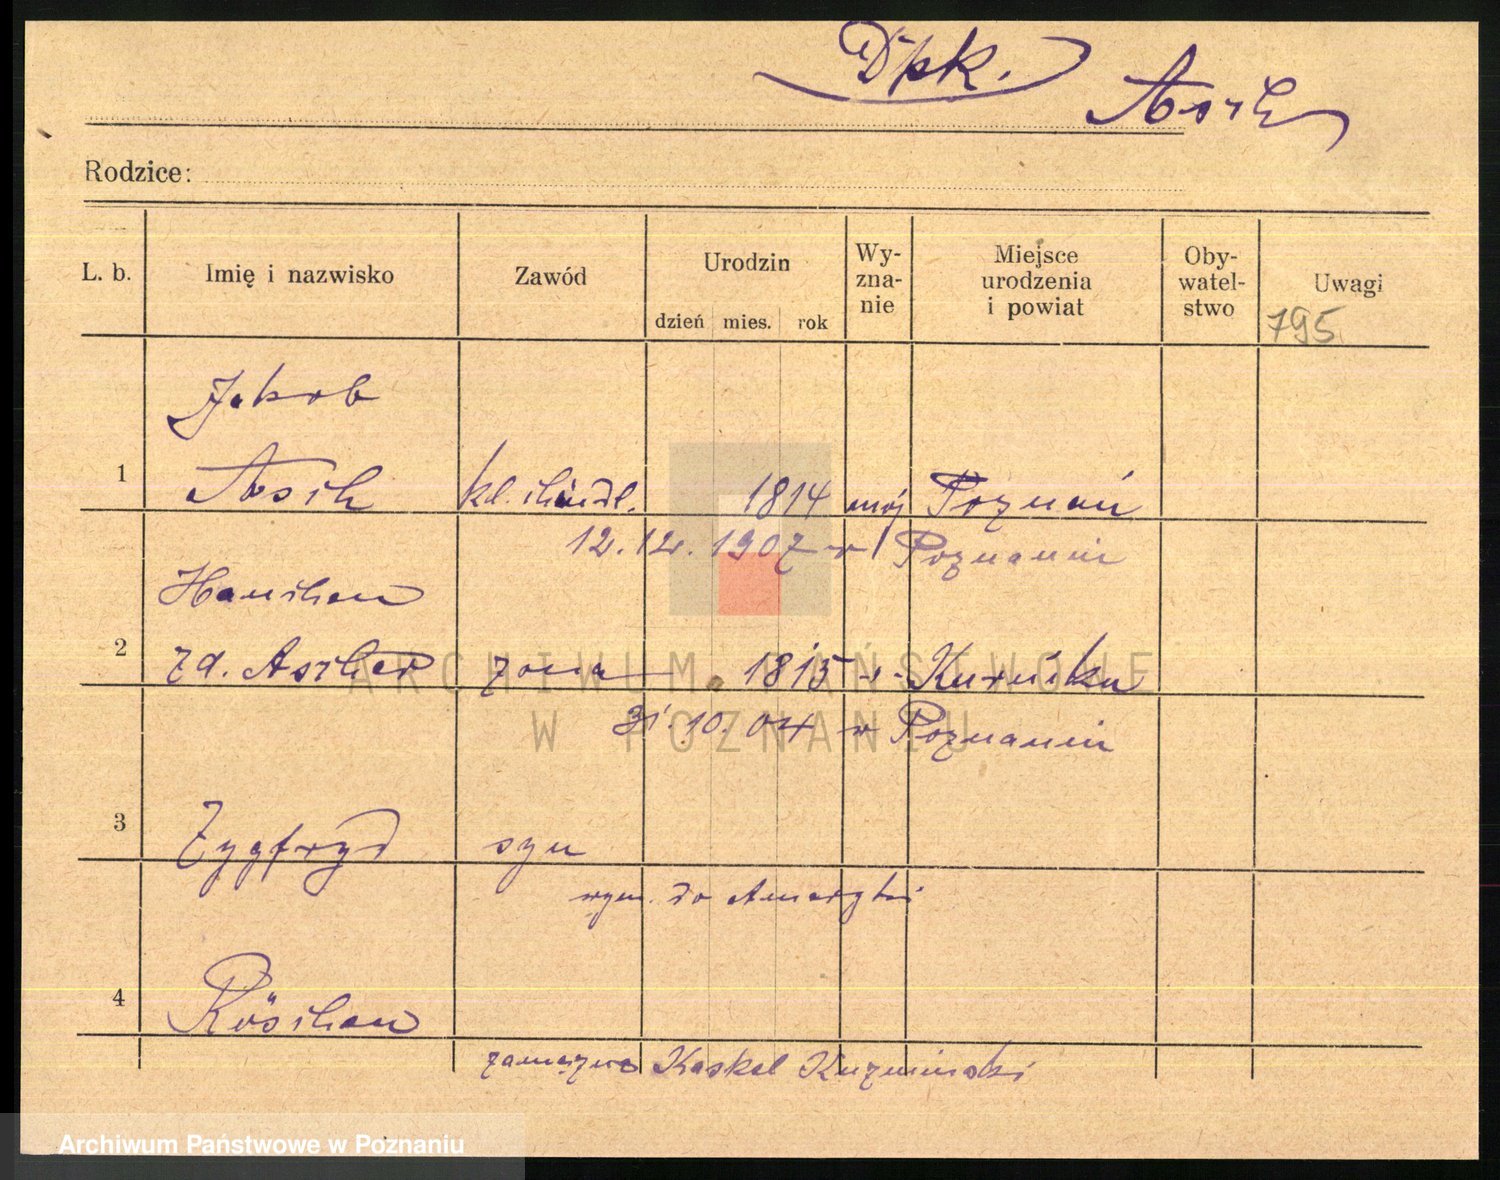 Dpk. Asch
Rodzice:
L. b. Imię i nazwisko Zawód Urodzin dzień mies. rok Wy-zna-nie Miejsce urodzenia i powiat Oby-watel-stwo Uwagi
795
Jakob
1 Asch kl. händl. 1814 moj Poznań
12. 12. 1907 w Poznaniu
Hanchen
2 zd. Ascher żona 1815 - " - Kurniku
31. 10. 04 w Poznaniu
3 Zygfryd syn
wym. do Ameryki
4 Röschen
zamężna Kaskel Kuzminski
ARCHIWUM PAŃSTWOWE
W POZNANIU
Archiwum Państwowe w Poznaniu